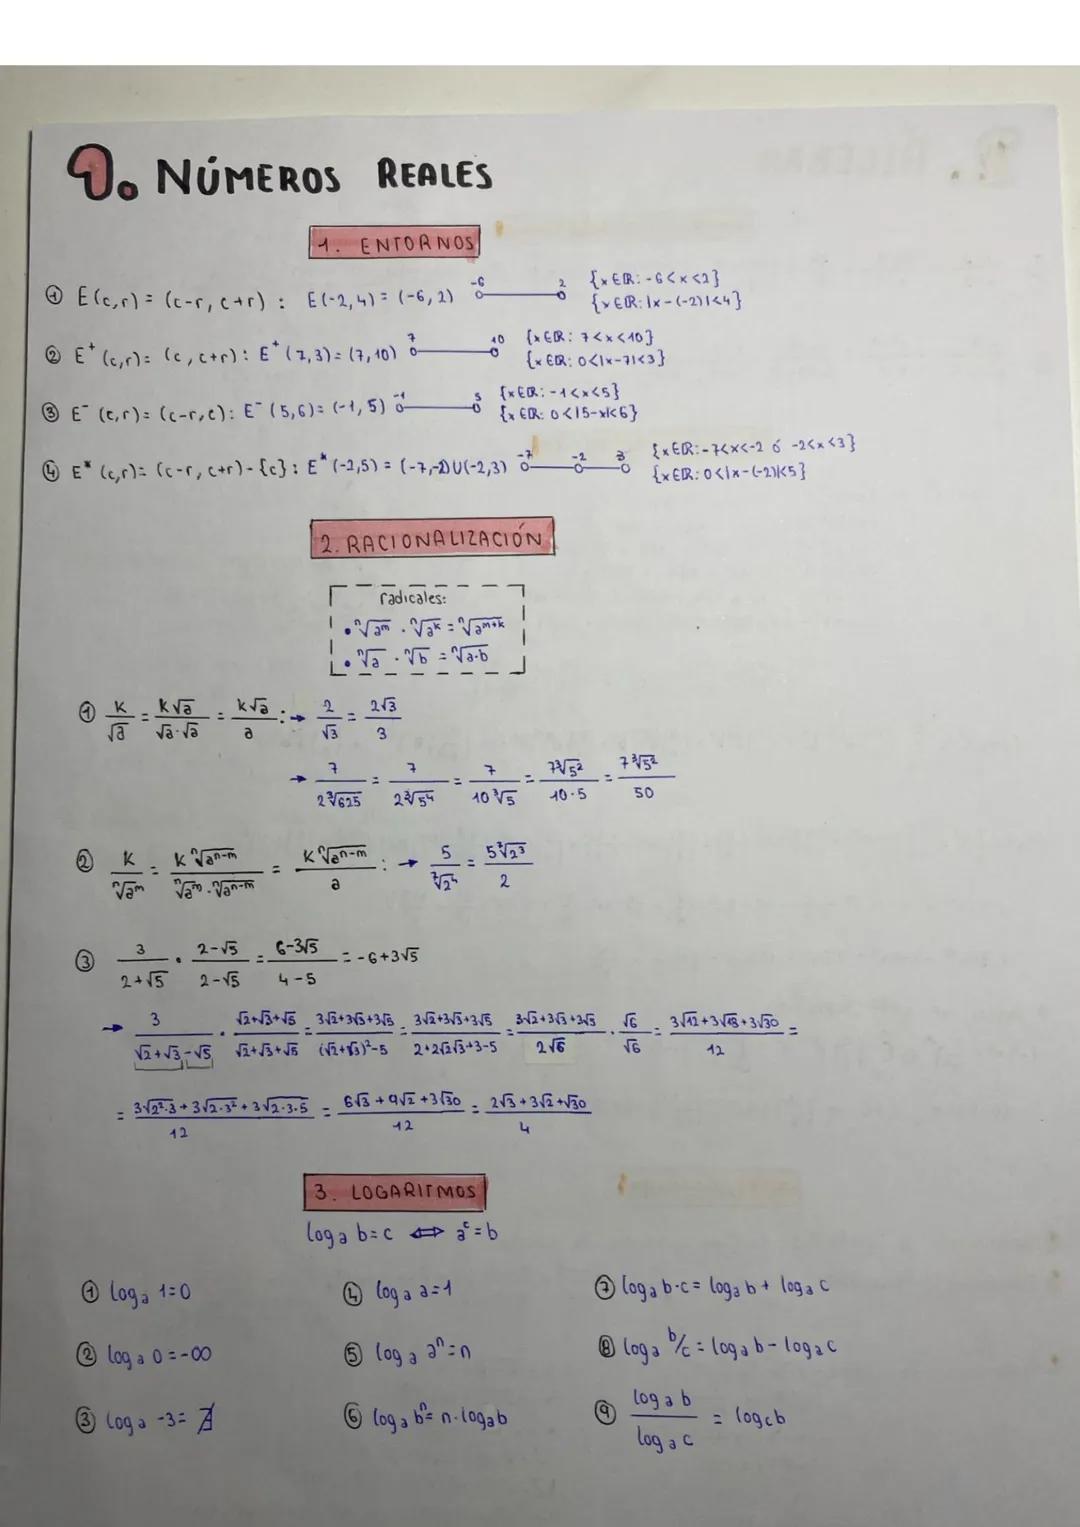 1. NÚMEROS REALES
1. ENTORNOS
① E(c,r) = (c-r, c+r) : E(-2,4) = (-6,2) -6 2 {x∈ℝ: -6<x<2}
{x∈ℝ: |x-(-2)|<4}
② E⁺(c,r) = (c, c+r) : E⁺(7,3) = (7,10) 7 10 {x∈ℝ: 7<x<10}
{x∈ℝ: 0<|x-7|<3}
③ E⁻(c,r) = (c-r,c) : E⁻(5,6) = (-1,5) -1 5 {x∈ℝ: -1<x<5}
{x∈ℝ: 0<|5-x|<6}
④ E*(c,r) = (c-r, c+r)-{c} : E*(-2,5) = (-7,-2)∪(-2,3) -7 -2 3 {x∈ℝ: -7<x<-2 ó -2<x<3}
{x∈ℝ: 0<|x-(-2)|<5}
2. RACIONALIZACIÓN
radicales:
• ⁿ√aᵐ · ⁿ√aᵏ = ⁿ√aᵐ⁺ᵏ
• ⁿ√a · ⁿ√b = ⁿ√a·b
① k/√a = k√a/√a·√a = k√a/a : → 2/√3 = 2√3/3
→ 7/2∛625 = 7/2∛5⁴ = 7/10∛5 = 7∛5²/10·5 = 7∛5²/50
② k/ⁿ√aᵐ = k ⁿ√aⁿ⁻ᵐ/ⁿ√aᵐ · ⁿ√aⁿ⁻ᵐ = k ⁿ√aⁿ⁻ᵐ/a : → 5/⁷√2⁴ = 5⁷√2³/2
③ 3/2+√5 · 2-√5/2-√5 = 6-3√5/4-5 = -6+3√5
→ 3/√2+√3-√5 · √2+√3+√5/√2+√3+√5 = 3√2+3√3+3√5/(√2+√3)²-5 = 3√2+3√3+3√5/2+2√2√3+3-5 = 3√2+3√3+3√5/2√6 · √6/√6 = 3√12+3√18+3√30/12 =
= 3√2²·3+3√2·3²+3√2·3·5/12 = 6√3+9√2+3√30/12 = 2√3+3√2+√30/4
3. LOGARITMOS
logₐ b=c ⇔ aᶜ=b
① logₐ 1=0 ④ logₐ a=1 ⑦ logₐ b·c = logₐ b + logₐ c
② logₐ 0=-∞ ⑤ logₐ aⁿ=n ⑧ logₐ b/c = logₐ b - logₐ c
③ logₐ -3= ∄ ⑥ logₐ bⁿ= n·logₐ b ⑨ logₐ b/logₐ c = log_c b